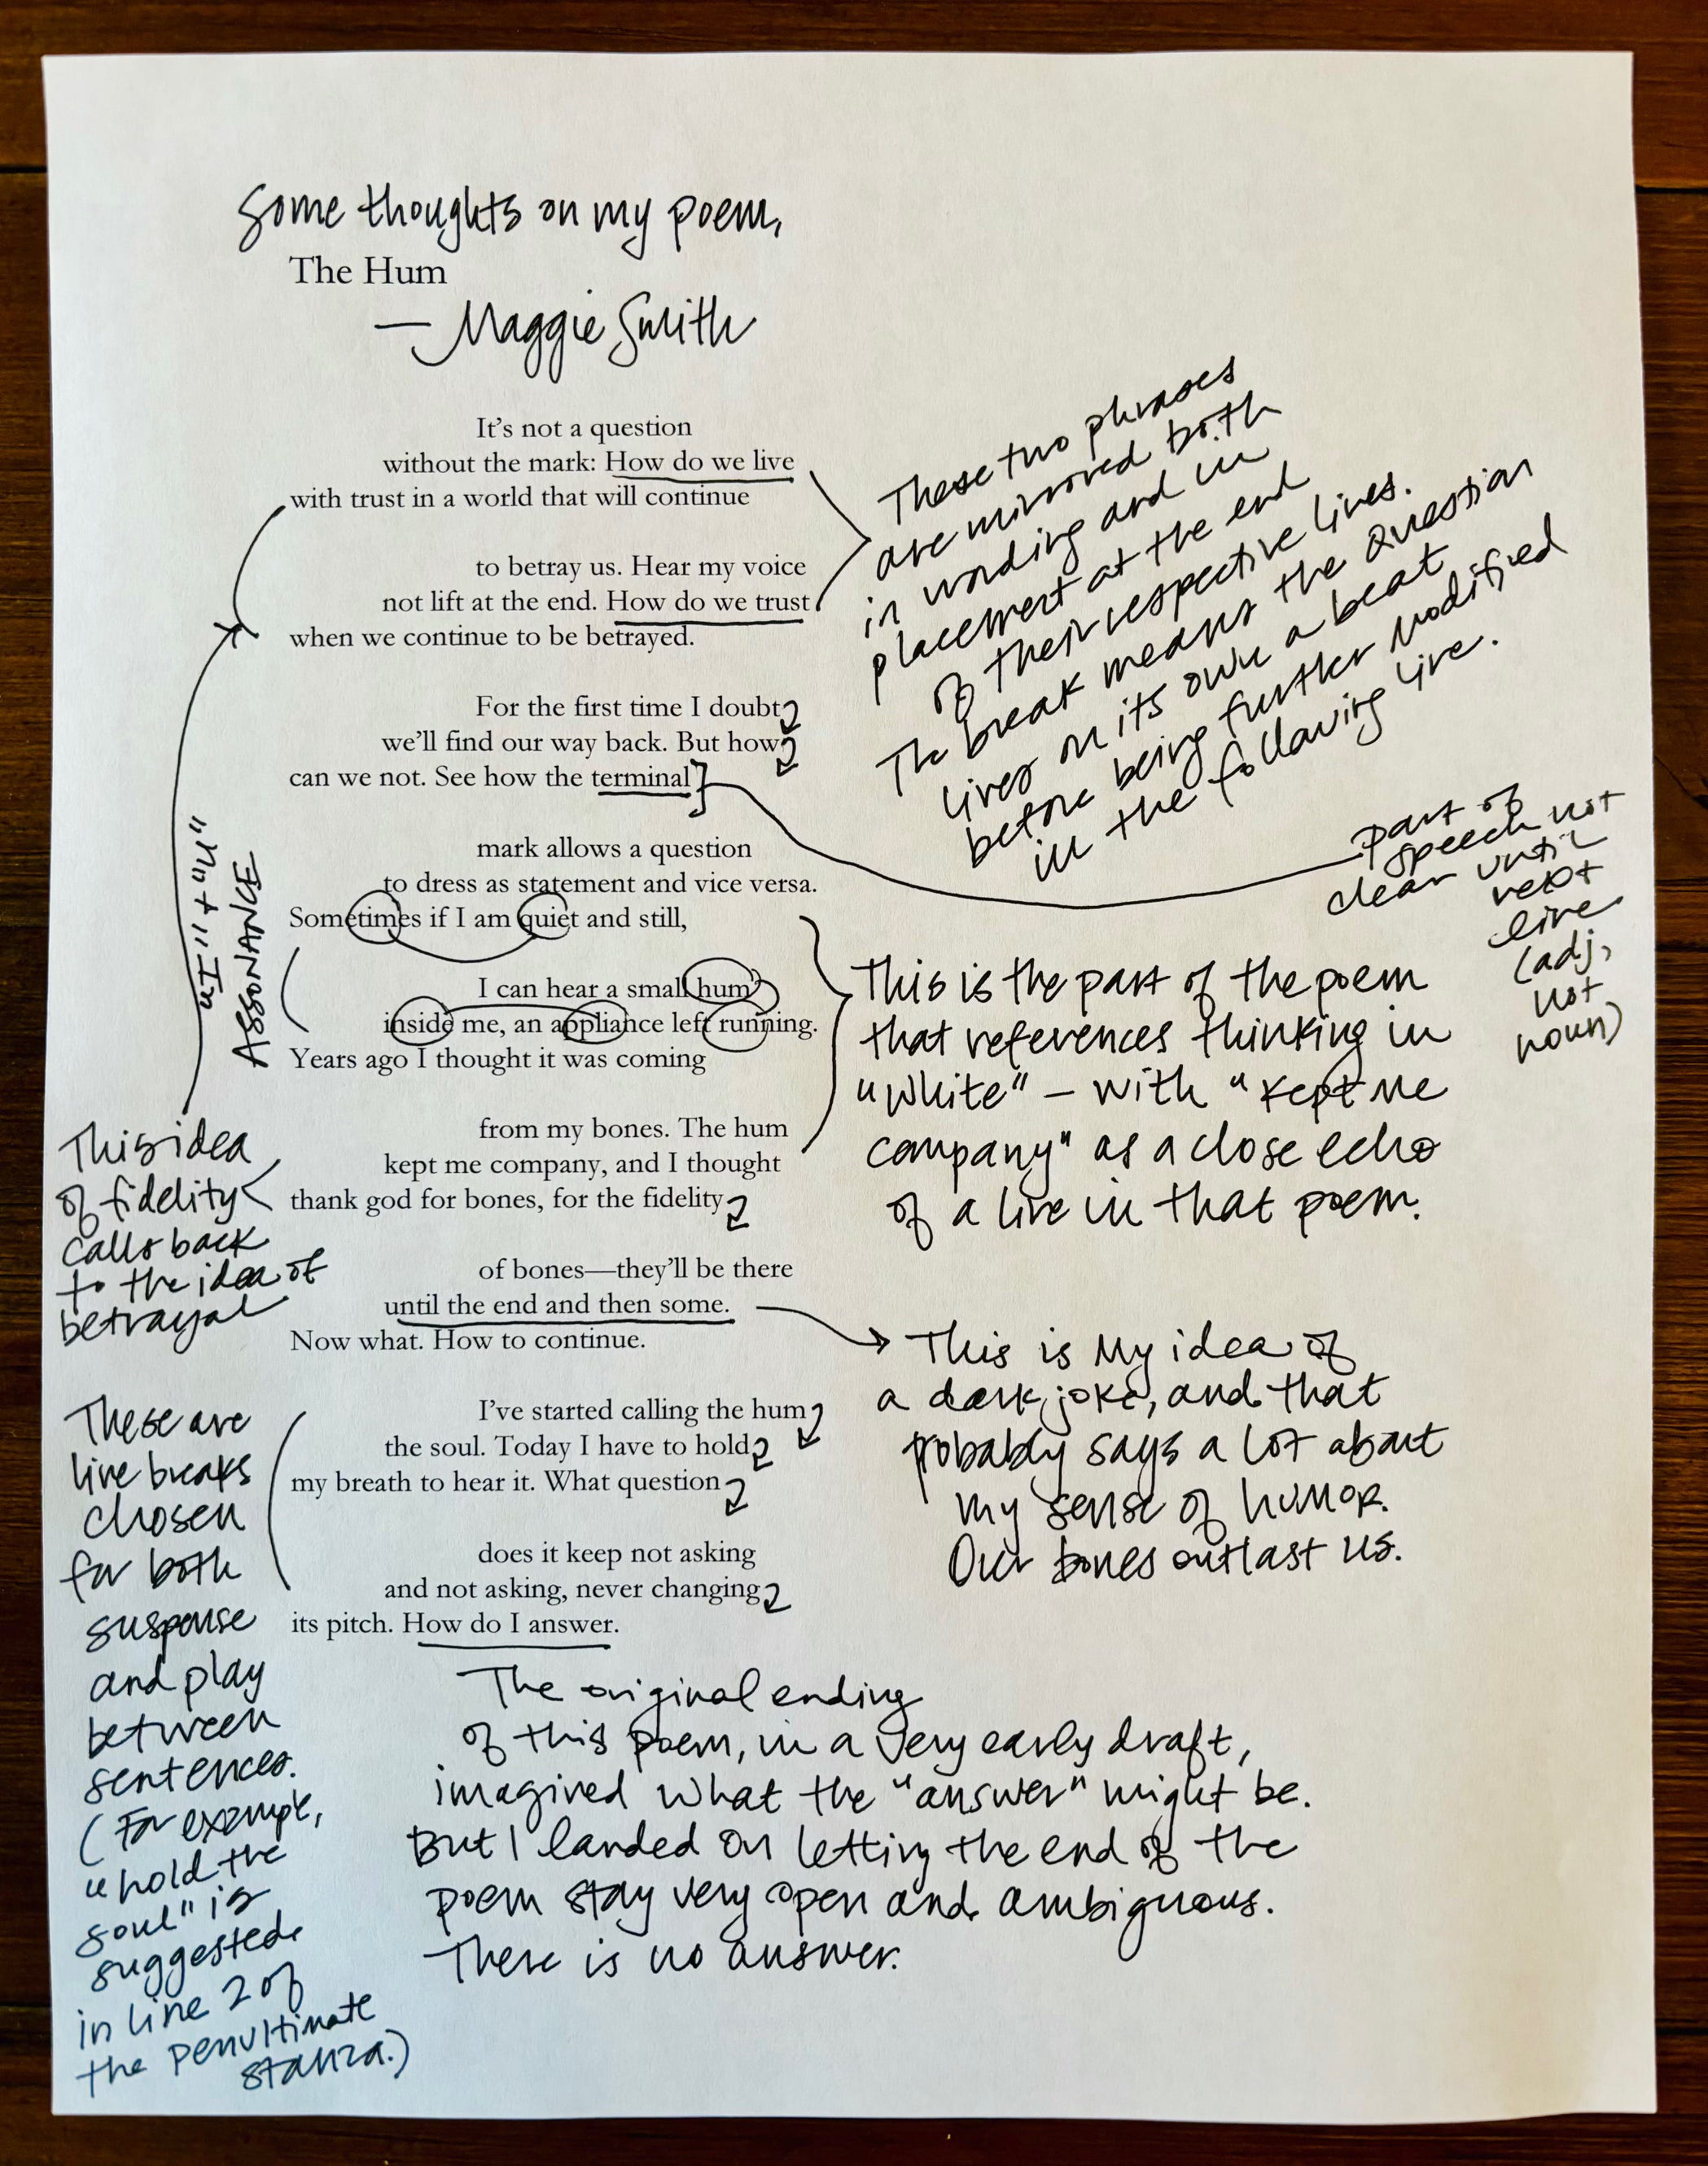 Some thoughts on my poem,
The Hum
— Maggie Smith
It's not a question
without the mark: How do we live
with trust in a world that will continue
to betray us. Hear my voice
not lift at the end. How do we trust
when we continue to be betrayed.
For the first time I doubt
we'll find our way back. But how
can we not. See how the terminal
mark allows a question
to dress as statement and vice versa.
Sometimes if I am quiet and still,
I can hear a small hum
inside me, an appliance left running.
Years ago I thought it was coming
from my bones. The hum
kept me company, and I thought
thank god for bones, for the fidelity
of bones—they'll be there
until the end and then some.
Now what. How to continue.
I've started calling the hum
the soul. Today I have to hold
my breath to hear it. What question
does it keep not asking
and not asking, never changing
its pitch. How do I answer.
These two phrases
are mirrored both
in wording and in
placement at the end
of their respective lines.
The break means the question
lives on its own a beat
before being further modified
in the following line.
Part of
speech not
clear until
next
line
(adj,
not
noun)
"I" + "U"
ASSONANCE
This is the part of the poem
that references thinking in
"White" – with "kept me
company" as a close echo
of a line in that poem.
This idea
of fidelity
calls back
to the idea of
betrayal
This is my idea of
a dark joke, and that
probably says a lot about
my sense of humor.
Our bones outlast us.
These are
line breaks
chosen
for both
suspense
and play
between
sentences.
(For example,
"hold the
soul" is
suggested
in line 2 of
the penultimate
stanza.)
The original ending
of this poem, in a very early draft,
imagined what the "answer" might be.
But I landed on letting the end of the
poem stay very open and ambiguous.
There is no answer.